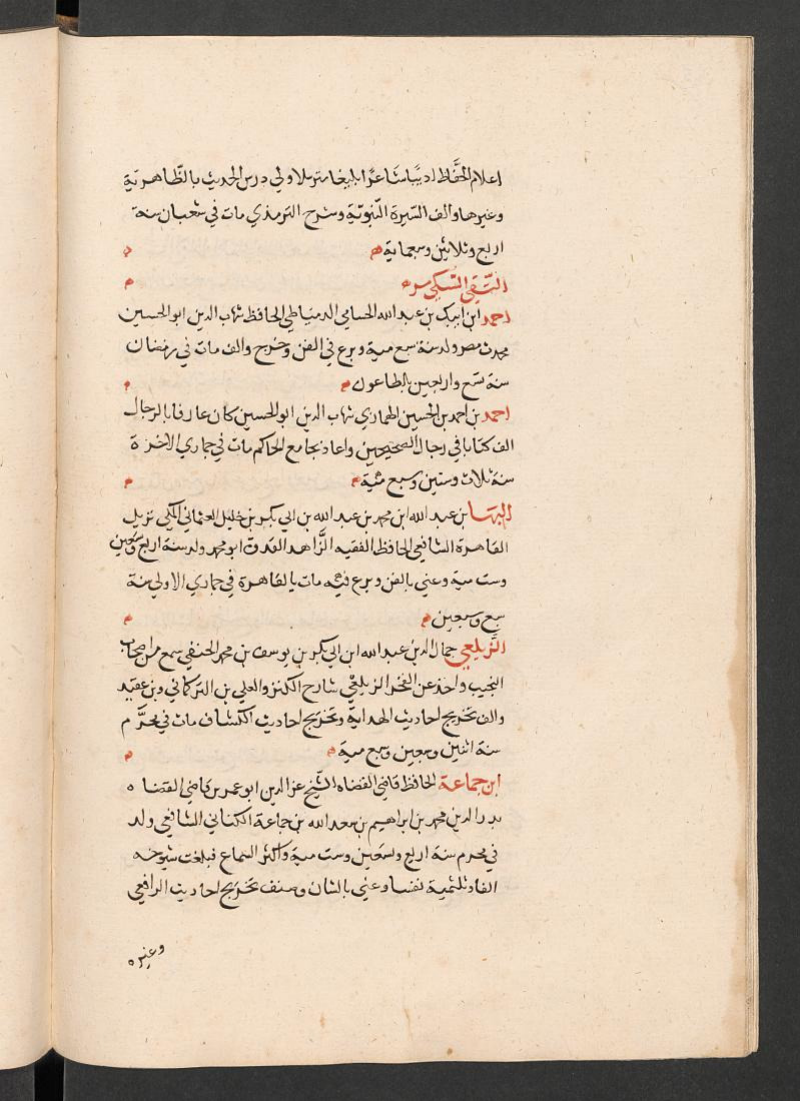 اعلام الحفاظ اديبا شاعرا بليغا مترسلا ولي درس الحديث بالظاهرية
وغيرها والف السيرة النبوية وشرح الترمذي مات في شعبان سنة
اربع وثلاثين وسبعماية
التقي السبكي مر
احمد ابن ايبك بن عبد الله الحسامي الدمياطي الحافظ شهاب الدين ابو الحسين
محدث مصر ولد سنة سبع مية وبرع في الفن وخرج والف مات في رمضان
سنة تسع واربعين بالطاعون
احمد بن احمد بن الحسين الهماري شهاب الدين ابو الحسين كان عارفا بالرجال
الف كتابا في رجال الصحيحين واعاد بجامع الحاكم مات في جمادي الاخرة
سنة ثلاث وستين وسبع مئية
البها بن عبد الله ابن محمد بن عبد الله بن ابي بكر بن خليل العثماني المكي نزيل
القاهرة الشافعي الحافظ الفقيه الزاهد القدوة ابو محمد ولد سنة اربع وتسعين
وست مية وعني بالفن وبرع فيه مات بالقاهرة في جمادي الاولي سنة
سبع وسبعين
الزيلعي جمال الدين عبد الله ابن ابي بكر بن يوسف بن محمد الحنفي سمع من اصحاب
النجيب واخذ عن الفخر الزيلعي شارح الكنز والعلي بن التركماني وبن عقيد
والف تخريج احاديث الهداية وتخريج احاديث الكشاف مات في محرم
سنة اثنين وسبعين وسبع مية
ابن جماعة الحافظ قاضي القضاه الشيخ عز الدين ابو عمر بن قاضي القضاه
بدر الدين محمد بن ابراهيم بن سعد الله بن جماعة الكناني الشافعي ولد
في محرم سنة اربع وتسعين وست مية واكثر السماع فبلغت شيوخه
الفا وثلثمية نفسا وعني بالشان وصنف تخريج احاديث الرافعي
وغيره